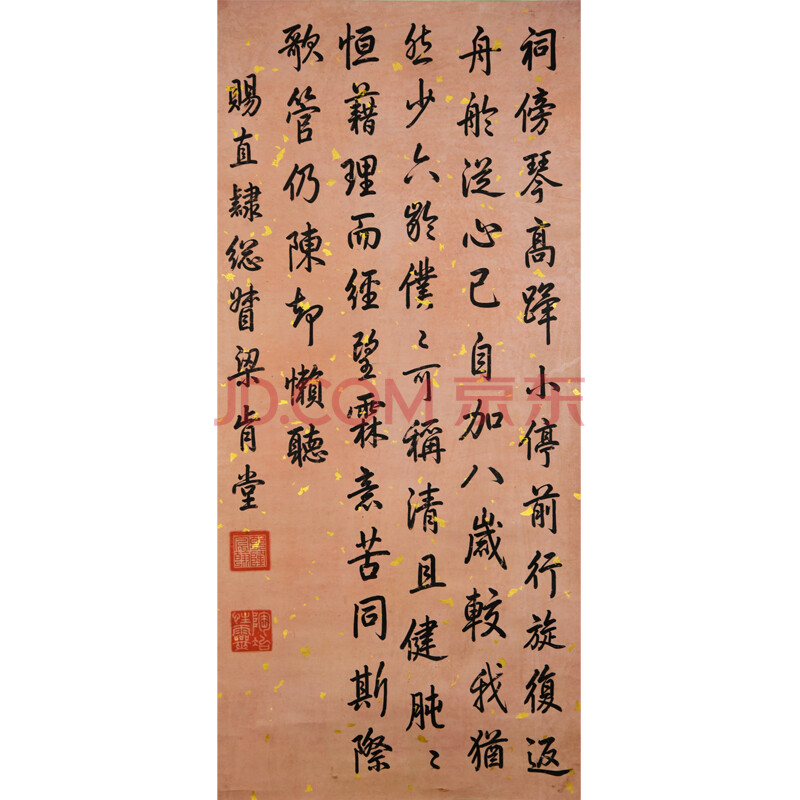 祠傍琴高蹕小停前行旋復返
舟舲從心已自加八歲較我猶
然少六齡僕〻可稱清且健肫〻
恒藉理而經望霖意苦同斯際
歌管仍陳却懶聽
賜直隸総督梁肯堂
陶冶性靈
JD.COM 京东